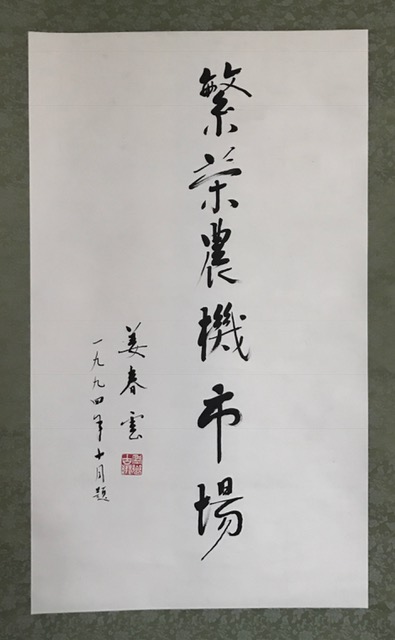 繁荣農機市場
姜春雲
一九九四年十月題